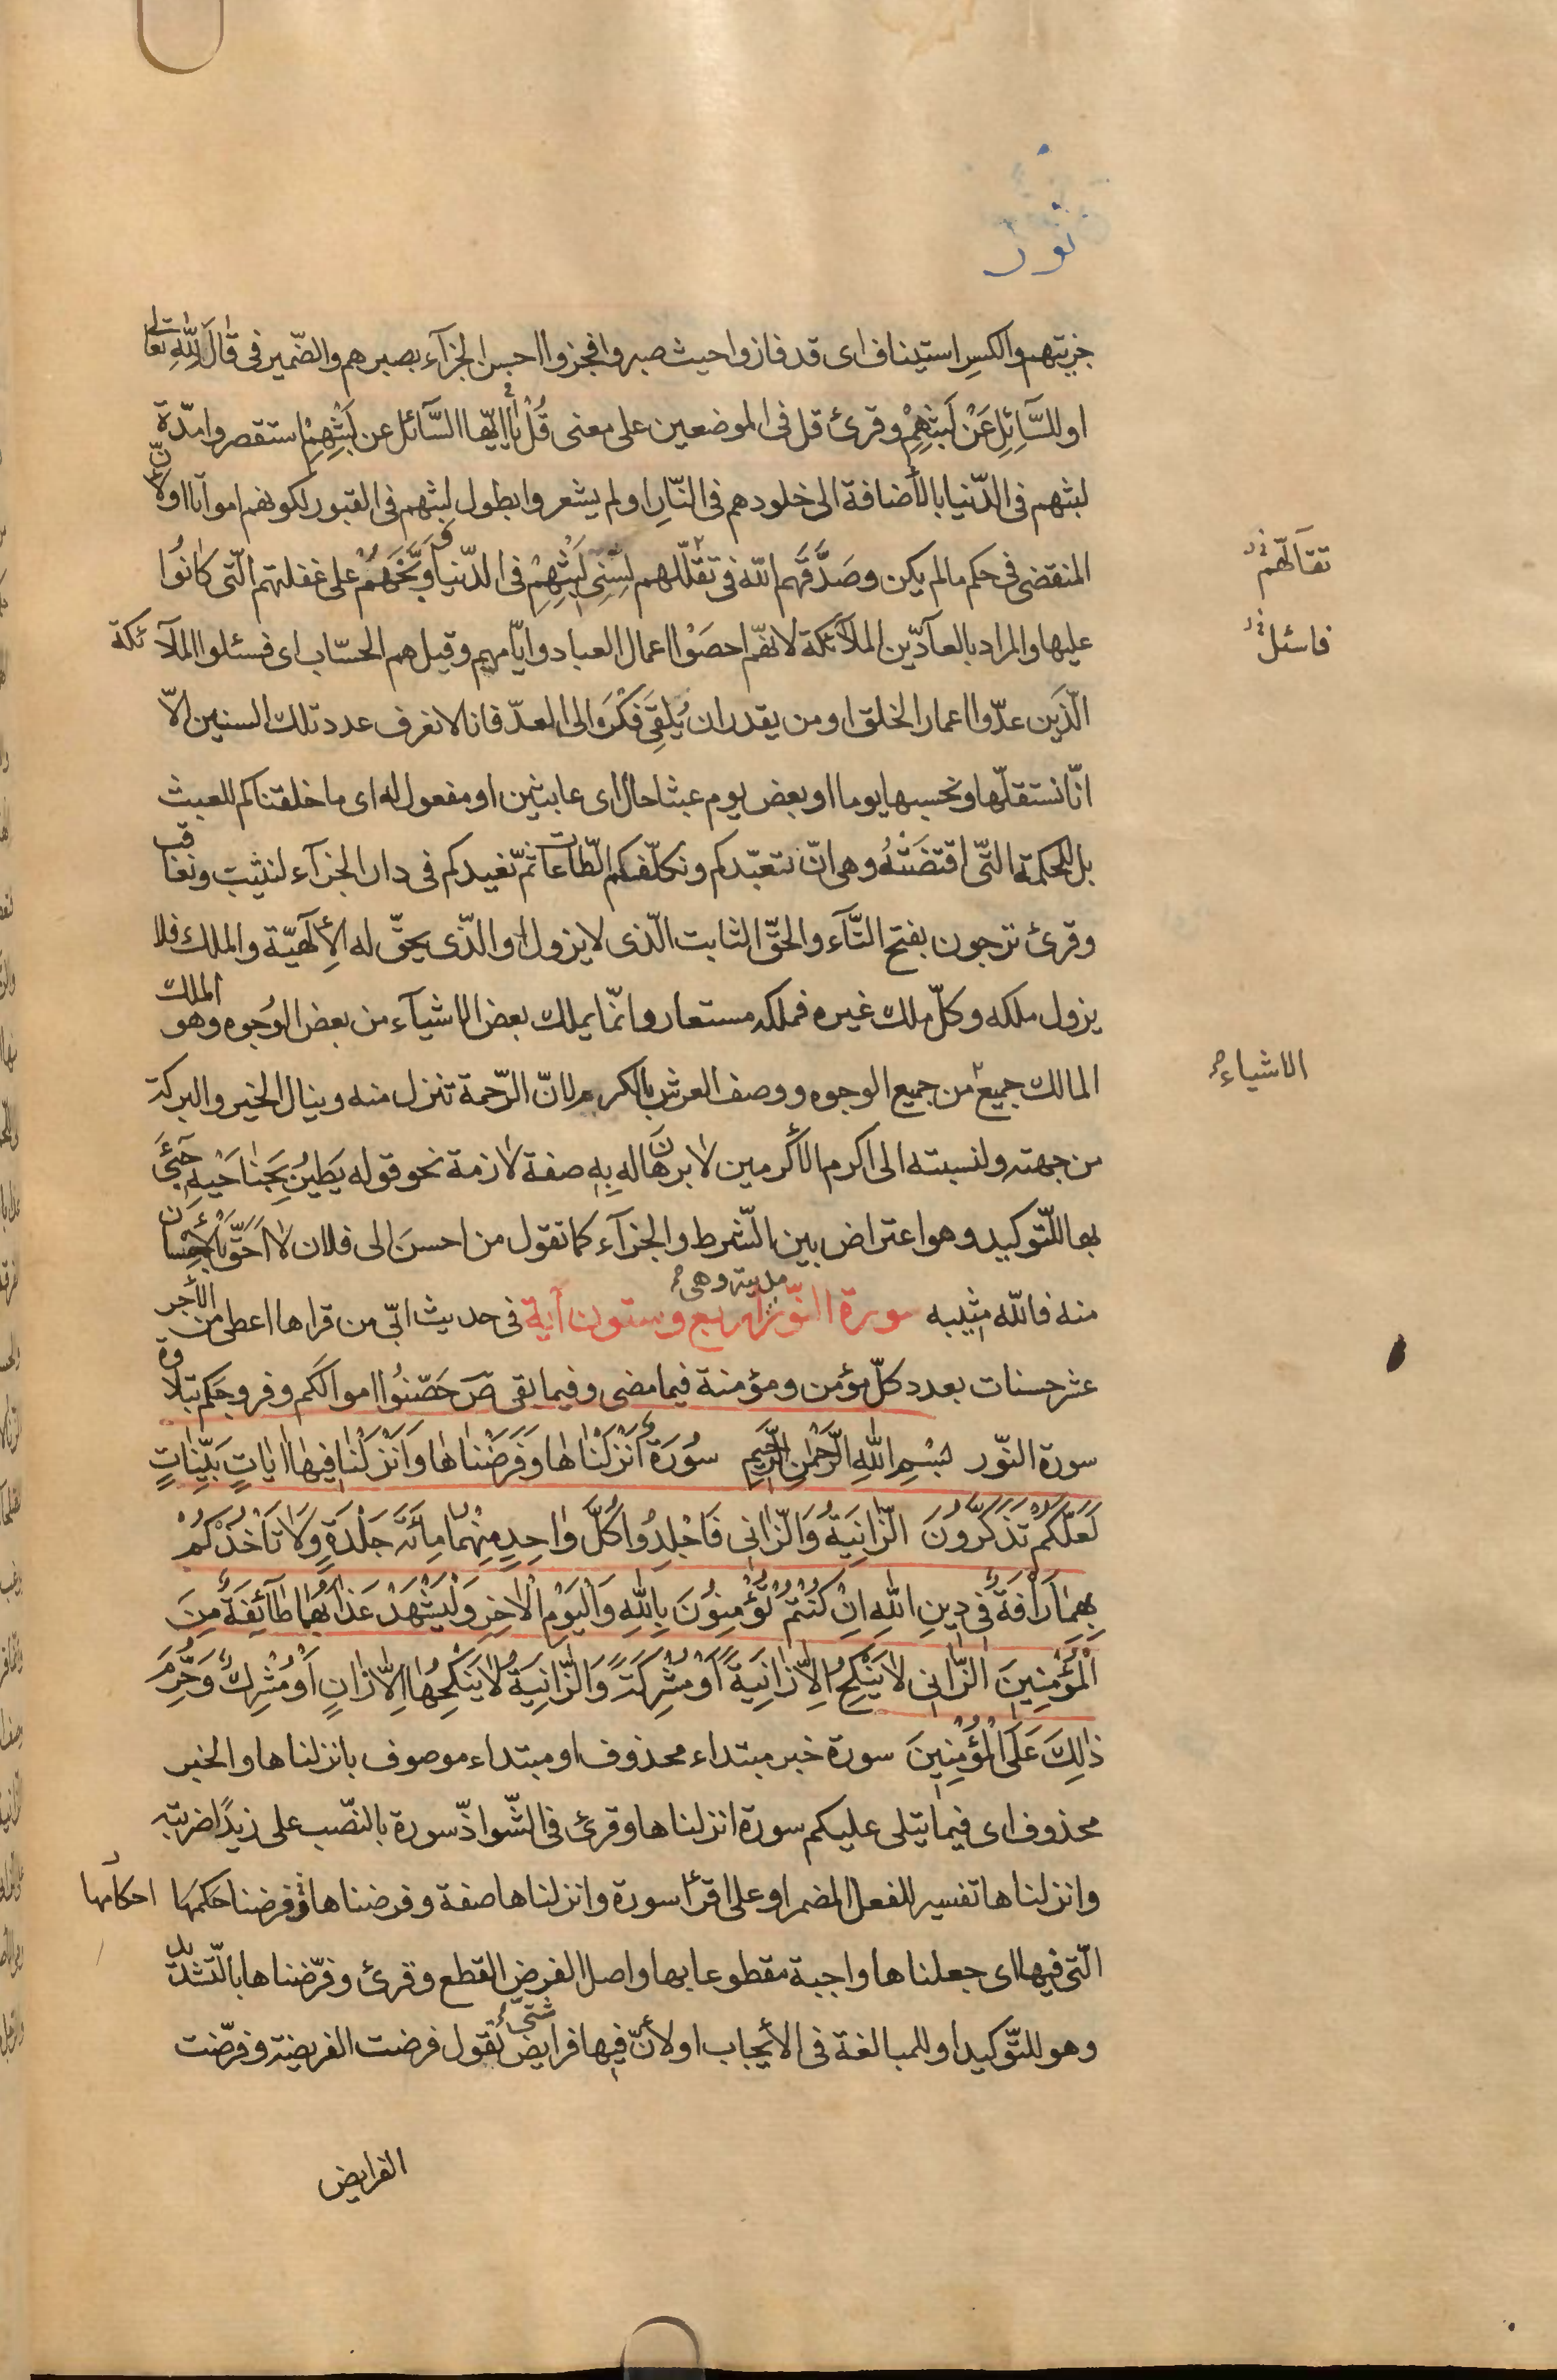 نور
جزيتهم والكسر استيناف اى قد فازوا حيث صبروا فجزوا احسن الجزآء بصبرهم والضّمير فى قال لِلّٰهِ تعالى
او للسّآئِل عَنْ لَبْثِهِمْ وقرئ قل فى الموضعين على معنى قُلْ يا ايّها السّآئل عن لَبْثِهِمْ استقصروا مدّة
لبثهم فى الدّنيا بالأضافة الى خلودهم فى النّار او لم يشعروا بطول لبثهم فى القبور لكونهم امواتا او لانّ
المنقضى فى حكم ما لم يكن وصَدَّقَهم اللّه فى تقلّلهم لِسِنِى لَبْثِهِمْ فى الدّنيا ووَبَّخَهُمْ على غفلتهم الّتى كانُوا
تقالّهم
عليها والمراد بالعآدّين الملآئكة لانهّم احصَوْا اعمال العباد وايّامهم وقيل هم الحسّاب اى فسئلوا الملآئكة
فاسئل
الّذين عدّوا اعمار الخلق او من يقدر ان يُلقِىَ فكرَه الى العدّ فانا لا نعرف عدد تلك السنين الاّ
انّا نستقلّها ونحسبها يوما او بعض يوم عبثا حال اى عابثين او مفعول له اى ما خلقناكم للعبث
بل للحكمة الّتى اقتضَتْهُ وهى ان نتعبّدكم ونكلّفكم الطّاعات ثمّ نعيدكم فى دار الجزآء لنثيب ونعاقب
وقرئ ترجون بفتح التّآء والحقّ الثابت الّذى لا يزول او الّذى يحقّ له الإلٓهيّة والملك فلا
يزول ملكه وكلّ ملك غيره فملكه مستعار وانّما يملك بعض الاشيآء من بعض الوُجوه وهو الملك
المالك جميع من جميع الوجوه ووصف العرش بالكرم لانّ الرّحمة تنزل منه وينال الخير والبركة
الاشياء
من جهته ولنسبته الى اكرم الأكرمين لا برهان له بِهِ صفة لازمة نحو قوله يَطيرُ بِجَناحَيْهِ جَىءَ
بها للتّوكيد وهو اعتراض بين الشّرط والجزآء كما تقول من احسن الى فلان لا اَحَقَّ بالأحْسان
منه فاللّه مثيبه سورة النّور مدنية وهى اربع وستون آية فى حديث ابىّ من قراها اعطى من الأجر
عشر حسنات بعدد كلّ مؤمن ومؤمنة فيما مضى وفيما بقى صَ حَصّنُوا اموالكم وفروجكم بتلاوة
سورة النّور بِسْمِ اللّٰهِ الرَّحْمٰنِ الرَّحيمِ سُورَةٌ اَنْزَلْناها وَفَرَضْناها وَاَنْزَلْنا فيها اٰياتٍ بَيِّناتٍ
لَعَلَّكُمْ تَذَكَّرُونَ الزّانِيَةُ وَالزّانى فَاجْلِدُوا كُلَّ واحِدٍ مِنْهُما مِائَةَ جَلْدَةٍ وَلا تَأْخُذْكُمْ
بِهِما رَاْفَةٌ فى دينِ اللّٰهِ اِنْ كُنْتُمْ تُؤْمِنُونَ بِاللّٰهِ وَالْيَوْمِ الْاٰخِرِ وَلْيَشْهَدْ عَذابَهُما طآئِفَةٌ مِنَ
الْمُؤْمِنينَ الزّانى لا يَنْكِحُ اِلّا زانِيَةً اَوْ مُشْرِكَةً وَالزّانِيَةُ لا يَنْكِحُها اِلّا زانٍ اَوْ مُشْرِكٌ وَحُرِّمَ
ذٰلِكَ عَلَى الْمُؤْمِنينَ سورة خبر مبتداء محذوف او مبتداء موصوف بانزلناها والخبر
محذوف اى فيما يتلى عليكم سورة انزلناها وقرئ فى الشّواذّ سورة بالنّصب على زيدًا ضربته
وانزلناها تفسير للفعل المضمر او على اقرأ سورة وانزلناها صفة وفرضناها وفرضنا حكمها احكامها
الّتى فيها اى جعلناها واجبة مقطوعا بها واصل الفرض القطع وقرئ وفرّضناها بالتّشديد
وهو للتّوكيد او للمبالغة فى الأيجاب او لأنّ فيها فرايض شتّى تقول فرضت الفريضة وفرّضت
الفرايض